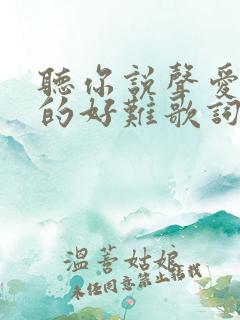 聽你說聲愛
的好難歌詞
溫蓍姑娘
未经同意禁止转载